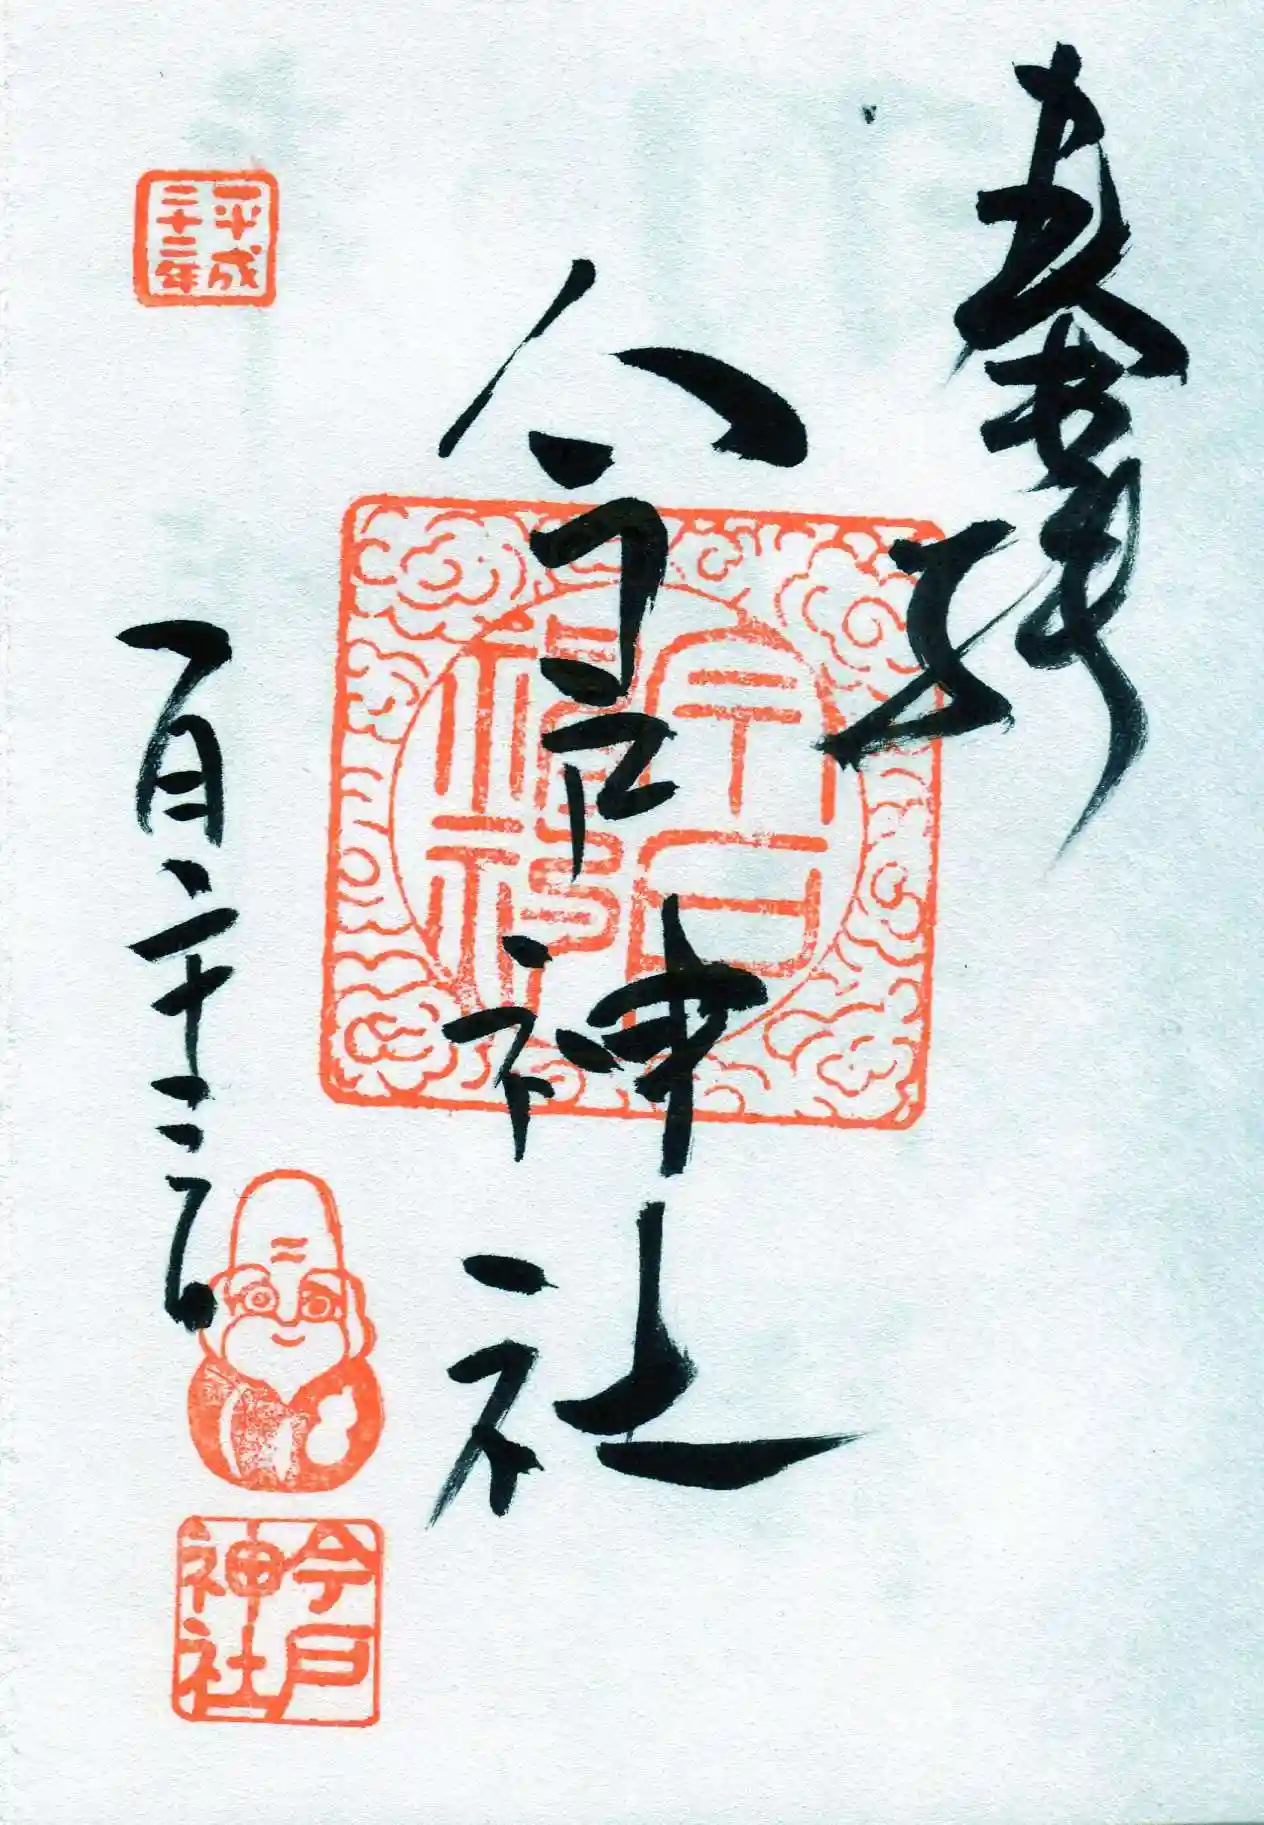 奉拝
今戸神社
平成二十二年
一月二十二日
今戸神社